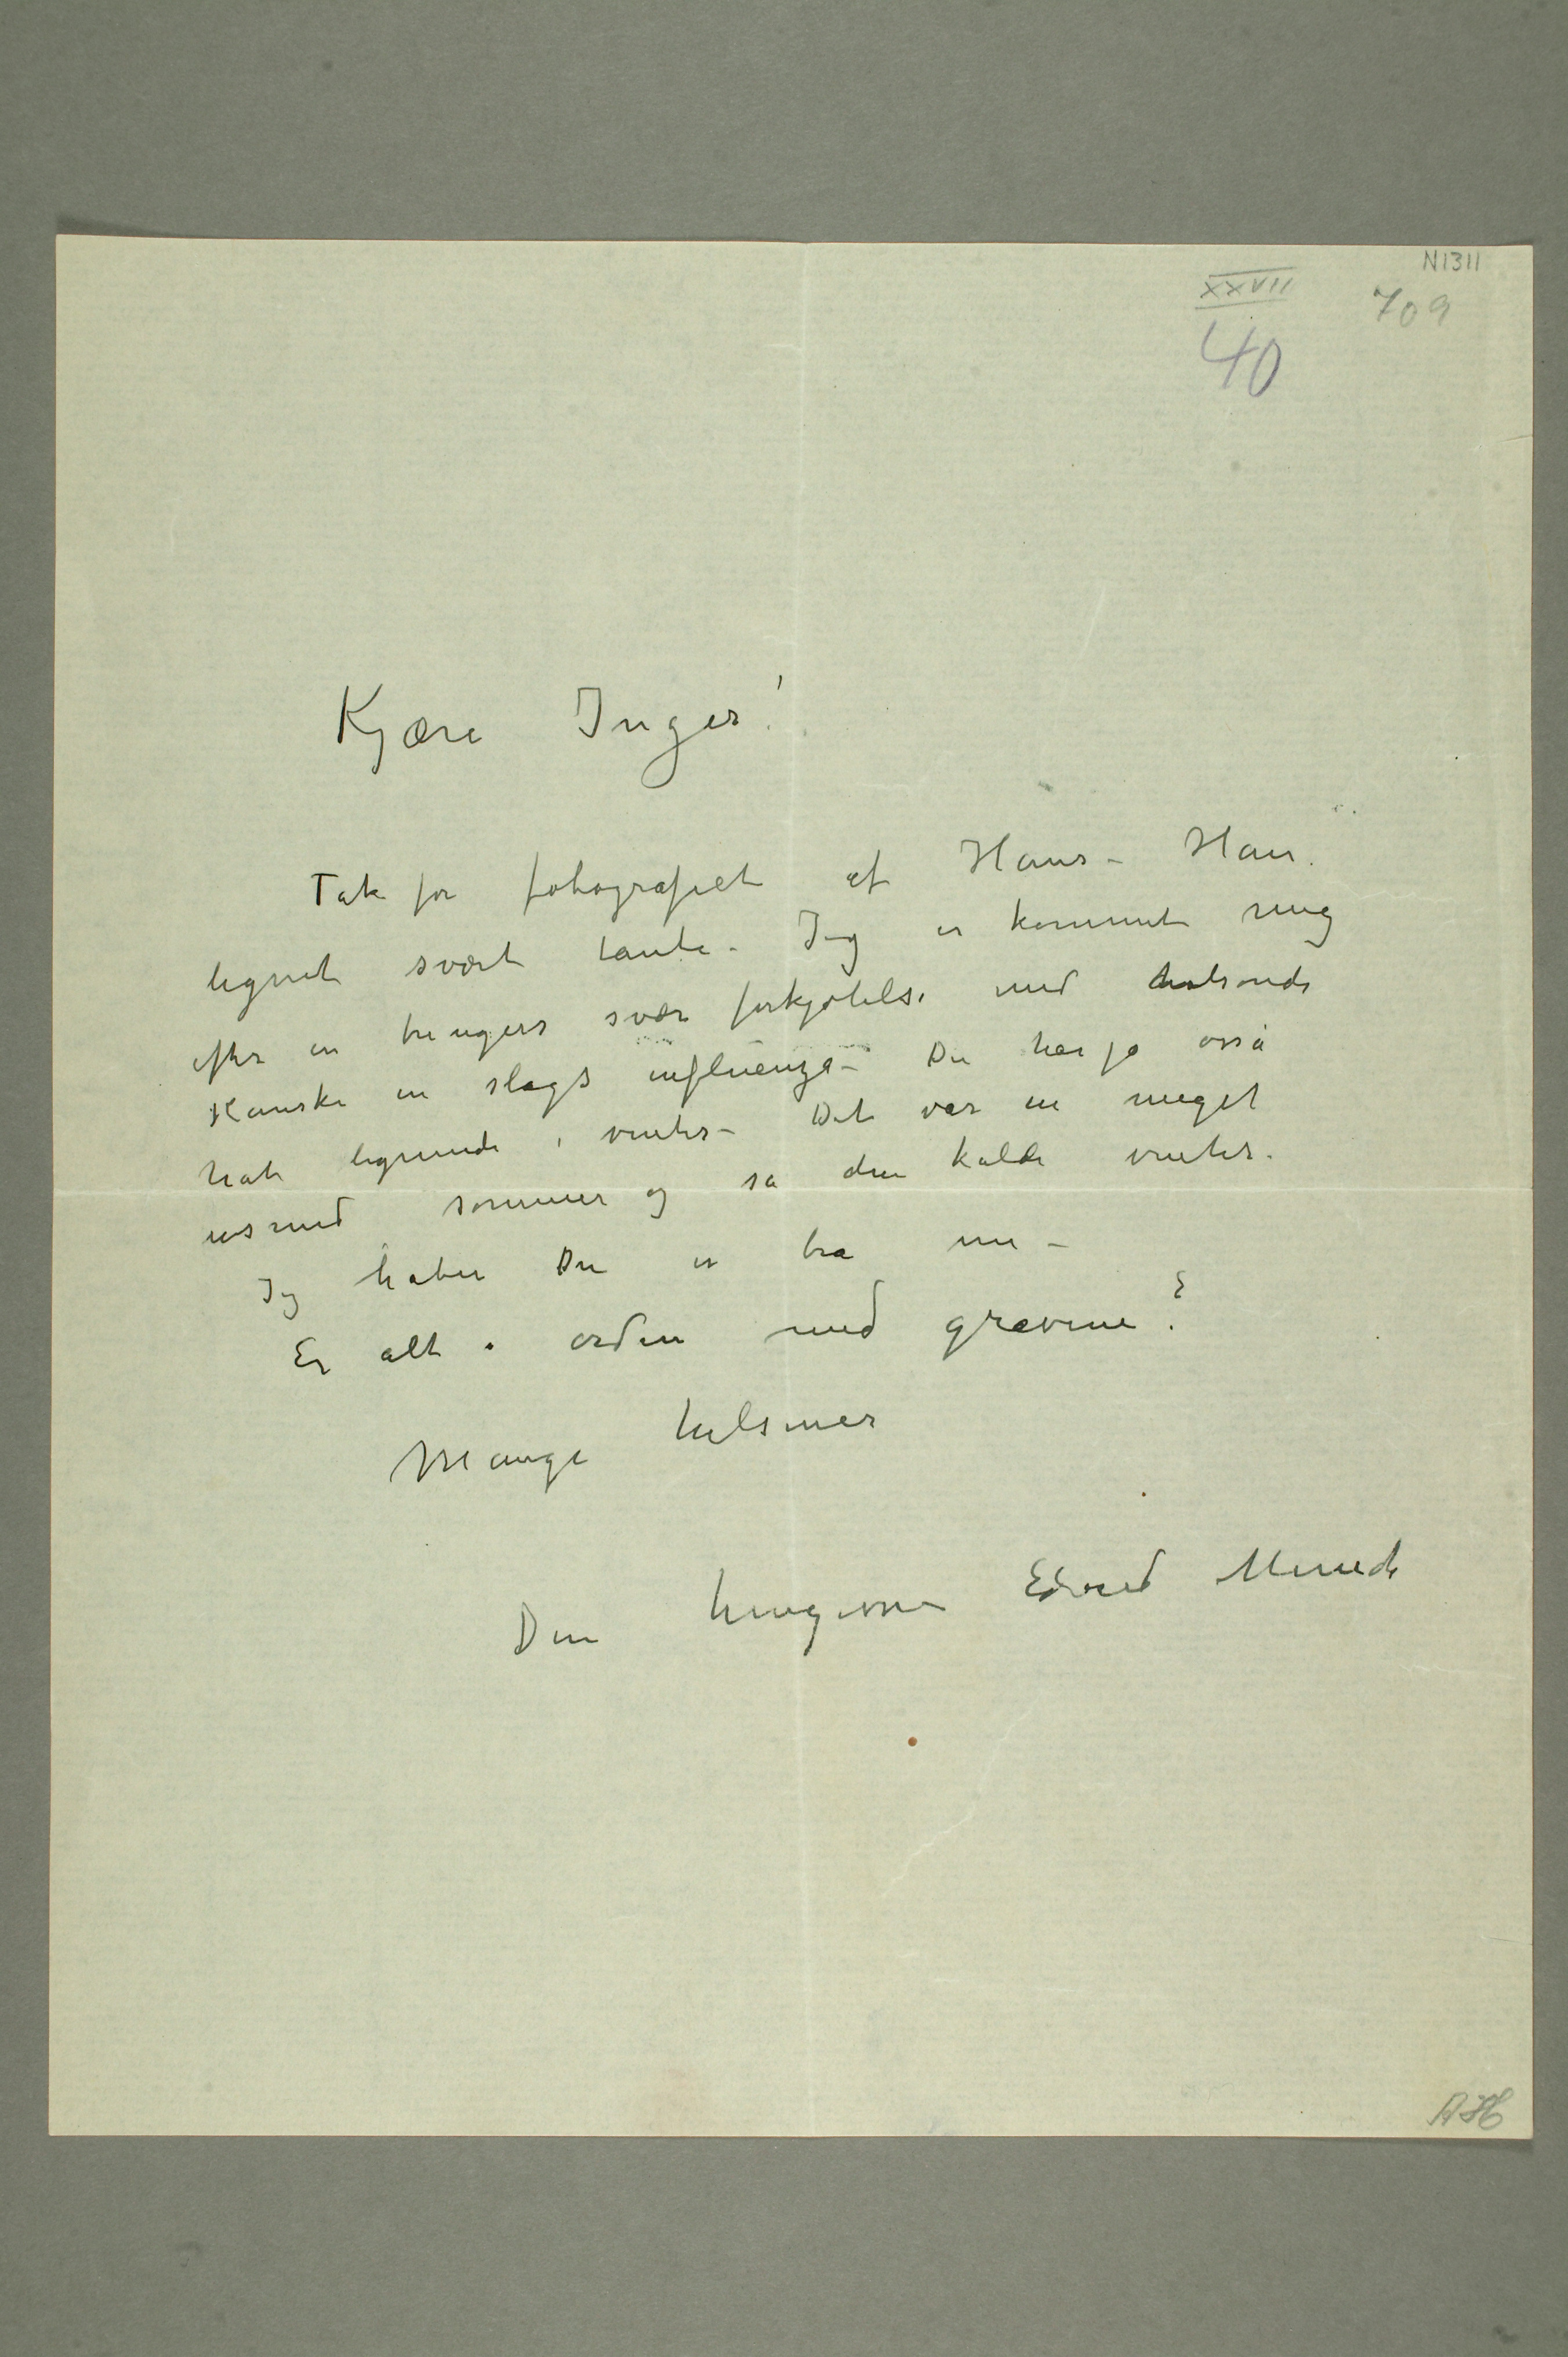 N1311
XXVII
709
40
Kjære Inger!
Tak for fotografiet af Hans – Han
lignet svært tante – Jeg er kommet mig
efter en treugers svær forkjølelse med halsonde
Kanske en slags influenza – Du har jo osså
hat lignende i vinter – Det var en meget
usund sommer og så den kolde vinter.
Jeg håber Du er bra nu –
Er alt i orden med gravene?
Mange hilsener
Din hengivne Edvard Munch
AH